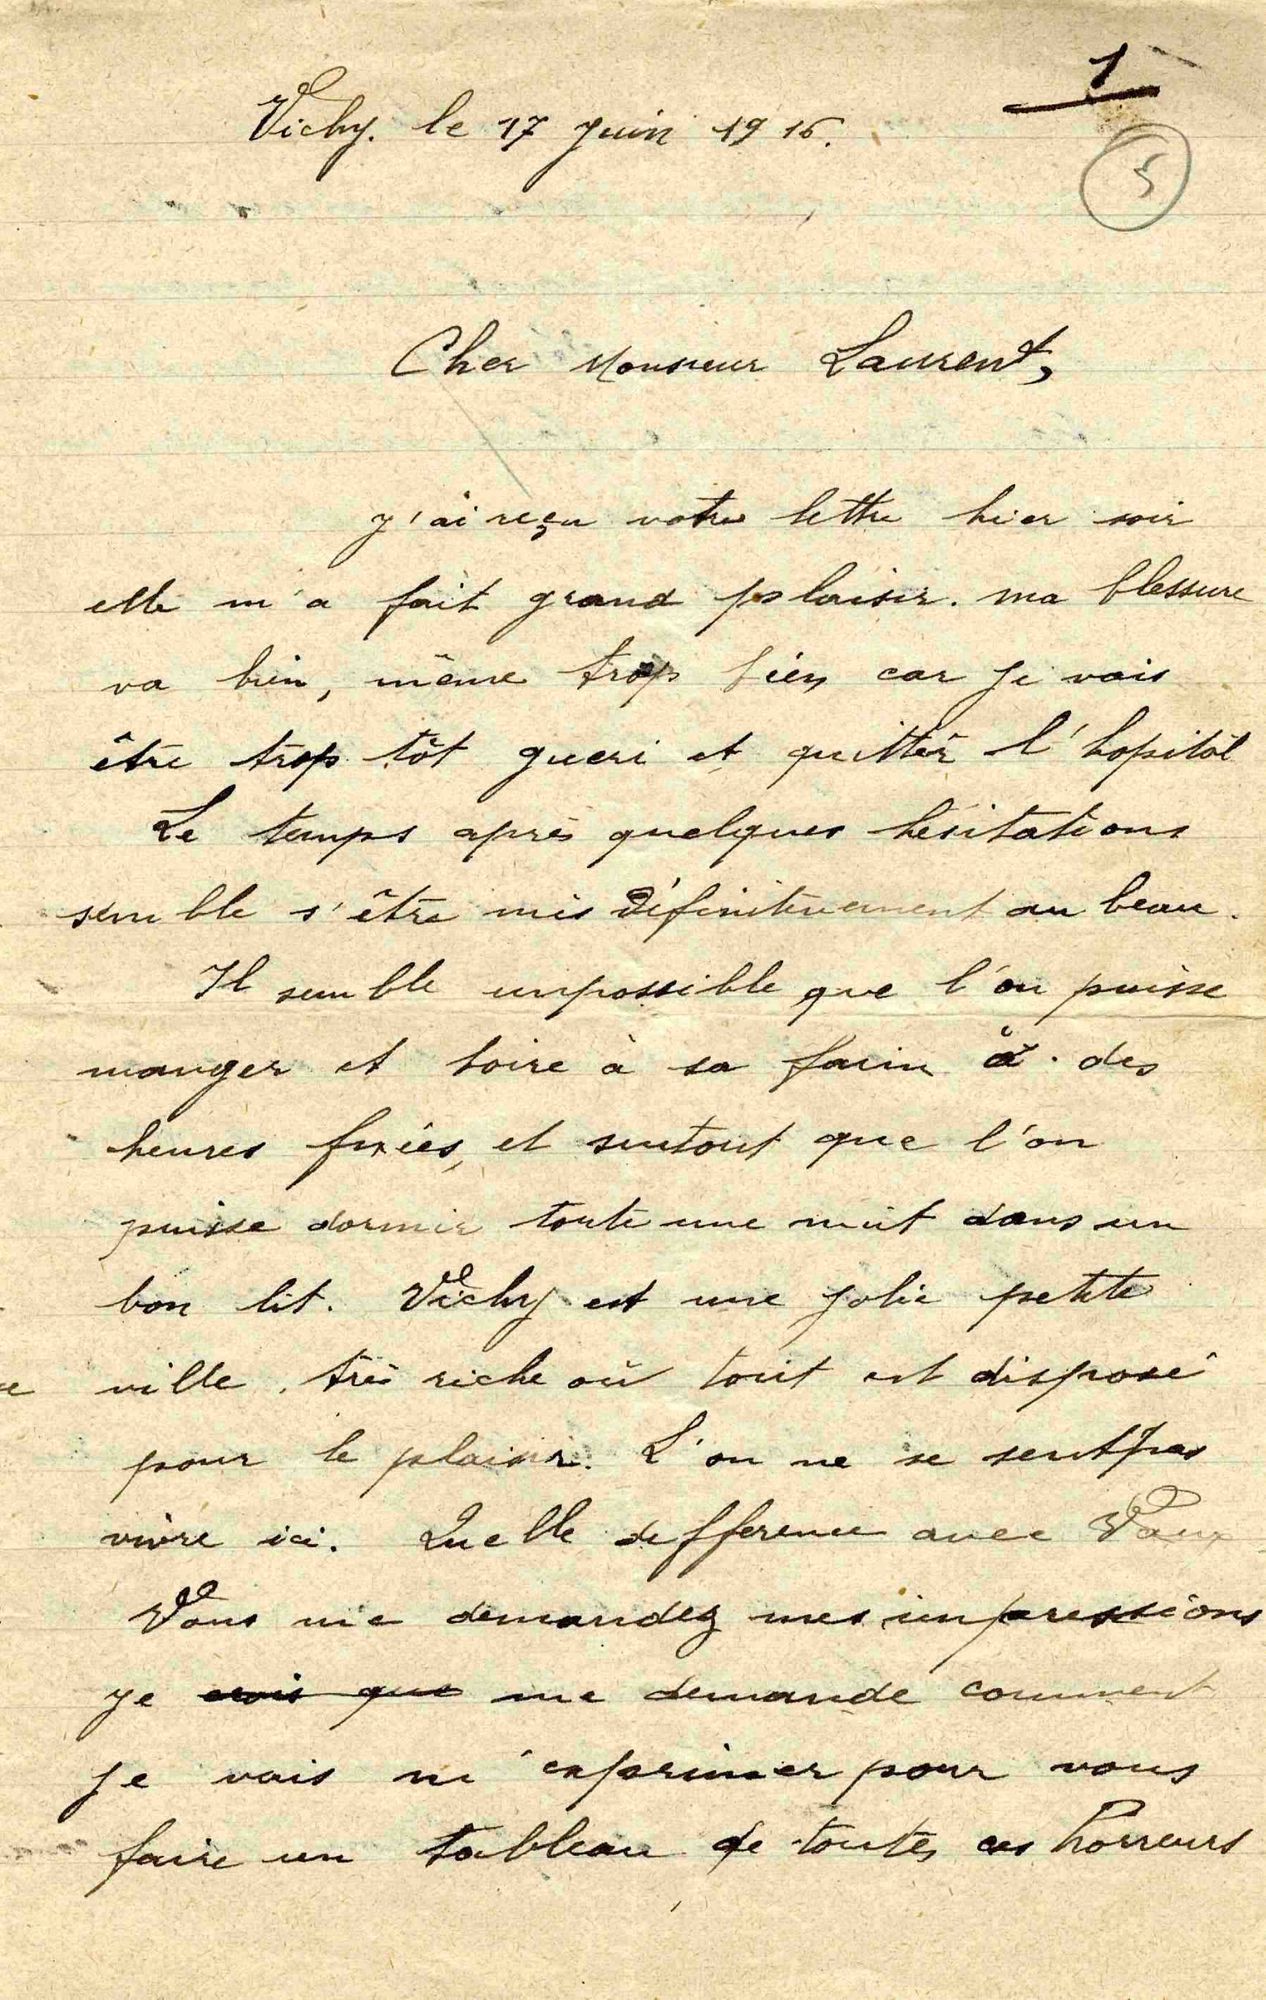 1
5
Vichy. le 17 juin 1916.
Cher Monsieur Laurent,
j'ai reçu votre lettre hier soir
elle m'a fait grand plaisir. ma blessure
va bien, même trop bien car je vais
être trop tôt gueri et quitter l'hopital
Le temps après quelques hésitations
semble s'être mis définitivement au beau.
Il semble impossible que l'on puisse
manger et boire à sa faim à des
heures fixées, et surtout que l'on
puisse dormir toute une nuit dans un
bon lit. Vichy est une jolie petite
ville, très riche où tout est disposé
pour le plaisir. L'on ne se sent pas
vivre ici. Quelle defference avec Vaux
Vous me demandez mes impressions
je crois que me demande comment
je vais m'exprimer pour vous
faire un tableau de toutes ces horreurs